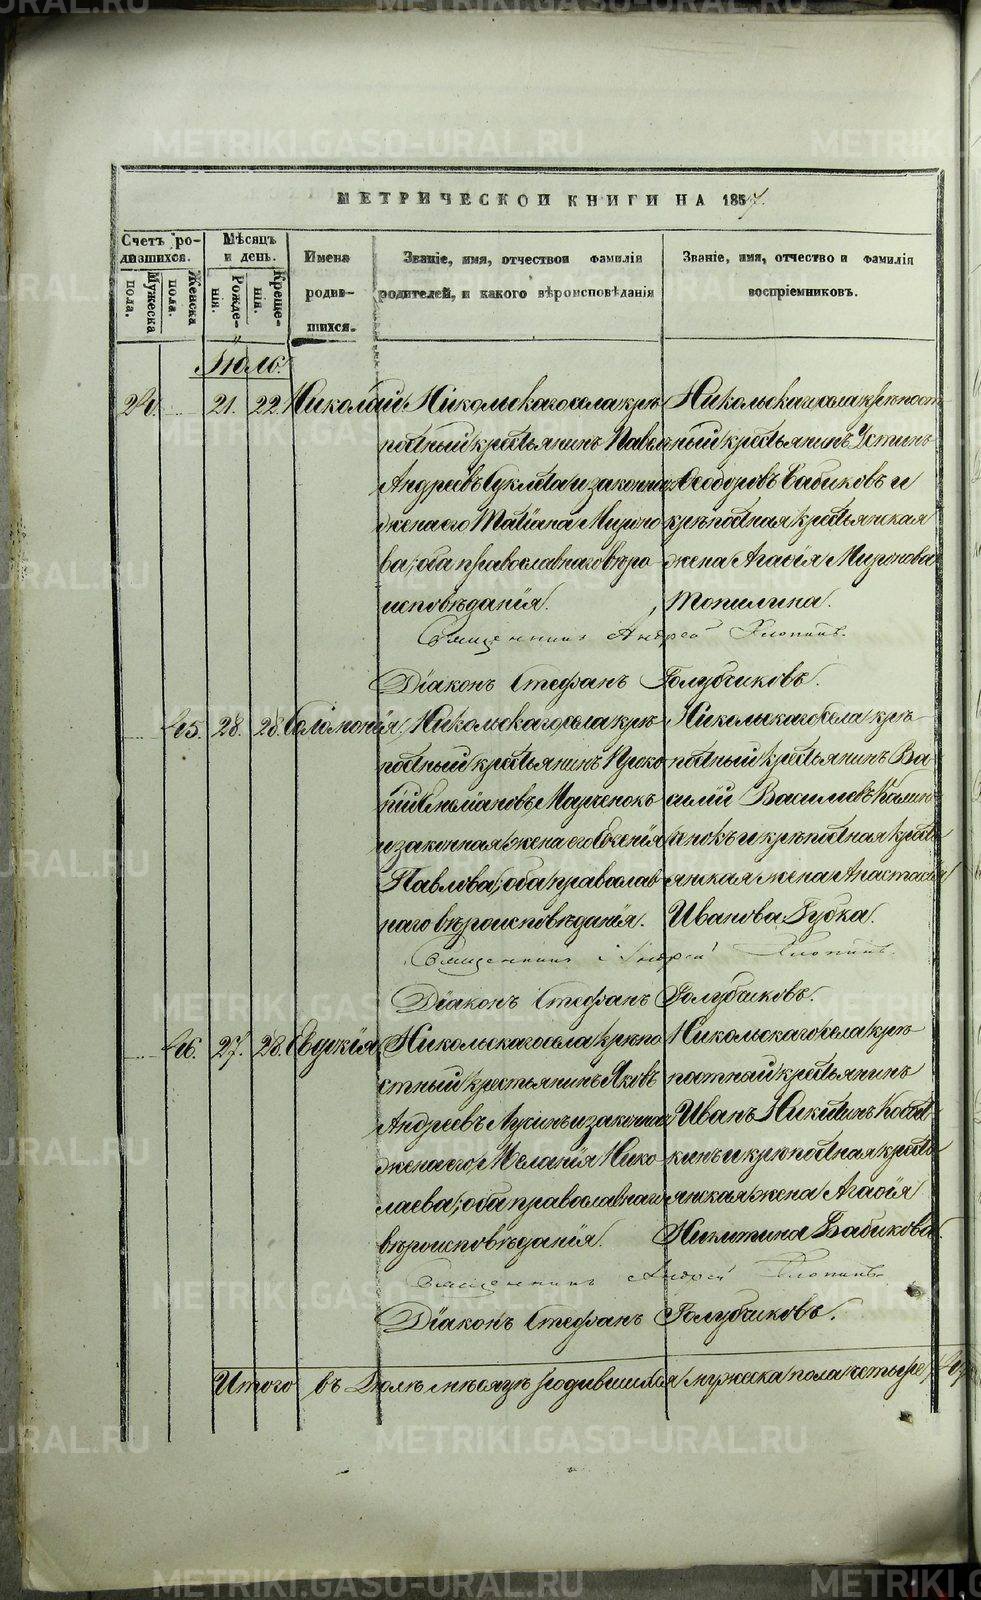 МЕТРИЧЕСКОЙ КНИГИ НА 1857.
Счетъ ро-
дившихся.
Мужеска
пола.
Женска
пола.
Мѣсяцъ
и день.
Рожде-
нія.
Креще-
нія.
Имена
родив-
шихся.
Званіе, имя, отчество и фамилія
родителей, и какого вѣроисповѣданія
Званіе, имя, отчество и фамилія
воспріемниковъ.
Іюль.
21. 22. Николай Никольскаго села крѣ-
постный крестьянинъ Павелъ
Андреевъ и законная
жена его Татіана Миро
ва, оба православнаго вѣро
исповѣданія.
Никольскаго села крѣпост
ный крестьянинъ Устинъ
Ѳеодоровъ Бабиковъ и
крѣпостная крестьянская
жена Агафія Миронова
Топилина.
Священникъ Андрей
Діаконъ Стефанъ Голубчиковъ.
28. 28. Соломонія Никольскаго села крѣ-
постный крестьянинъ Проко
пій Емеліановъ Марченокъ
и законная жена его Евгенія
Павлова, оба православ
наго вѣроисповѣданія.
Никольскаго села крѣ-
постный крестьянинъ Ва
силій Васильевъ
и крѣпостная кресть
янская жена Анастасія
Иванова Губка.
Священникъ Андрей
Діаконъ Стефанъ Голубчиковъ.
27. 28. Евдокія Никольскаго села крѣпо
стный крестьянинъ Яковъ
Андреевъ и законная
жена его Меланія Нико
лаева, оба православнаго
вѣроисповѣданія.
Никольскаго села крѣ-
постный крестьянинъ
Иванъ Никитинъ Кост
кинъ и крѣпостная кресть
янская жена Агафія
Никитина Бабикова.
Священникъ Андрей
Діаконъ Стефанъ Голубчиковъ.
Итого въ Іюлѣ мѣсяцѣ родившихся мужеска пола четыре,
METRIKI.GASO-URAL.RU